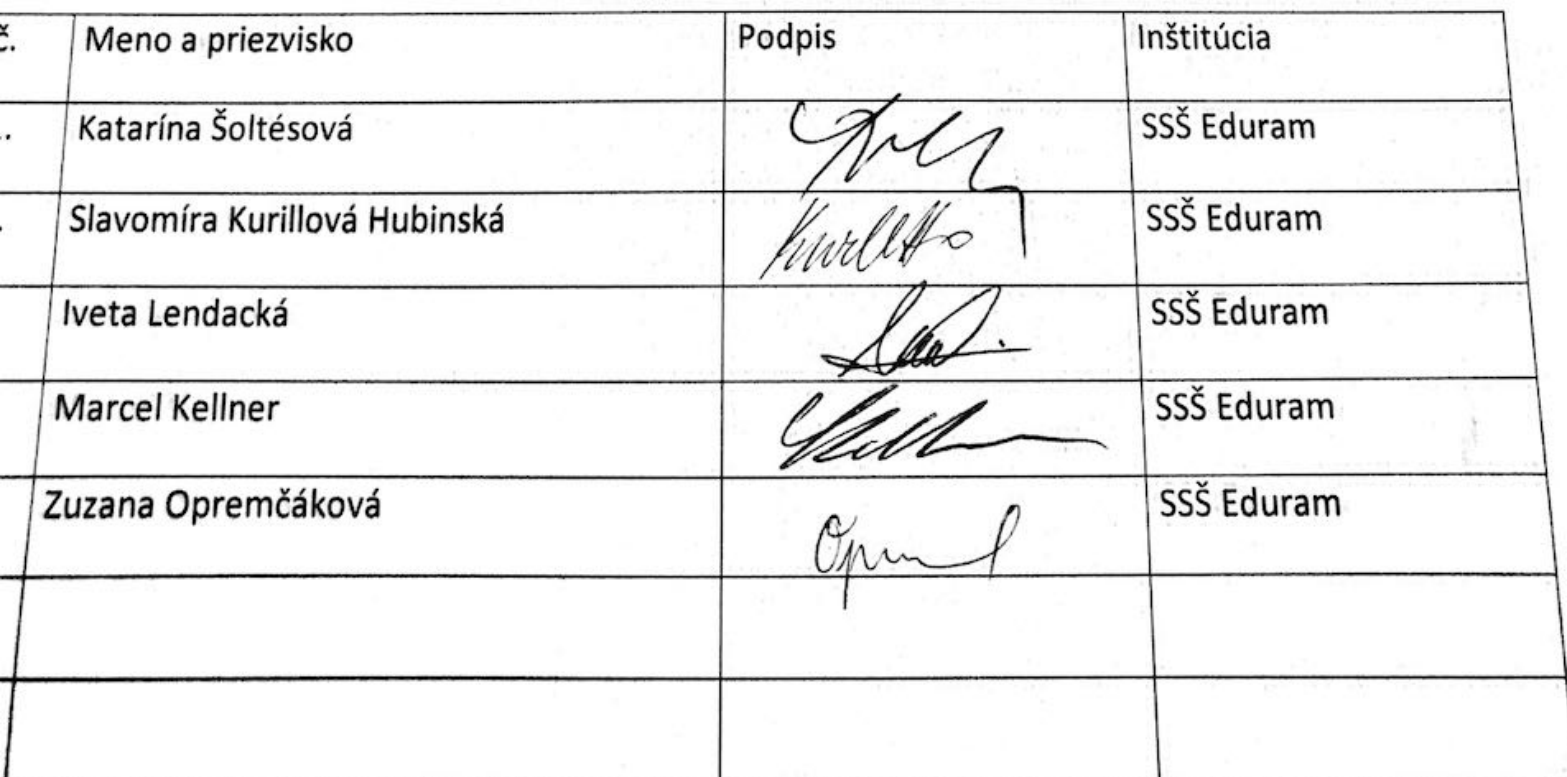 č. Meno a priezvisko Podpis Inštitúcia
. Katarína Šoltésová SSŠ Eduram
. Slavomíra Kurillová Hubinská SSŠ Eduram
Iveta Lendacká SSŠ Eduram
Marcel Kellner SSŠ Eduram
Zuzana Opremčáková SSŠ Eduram